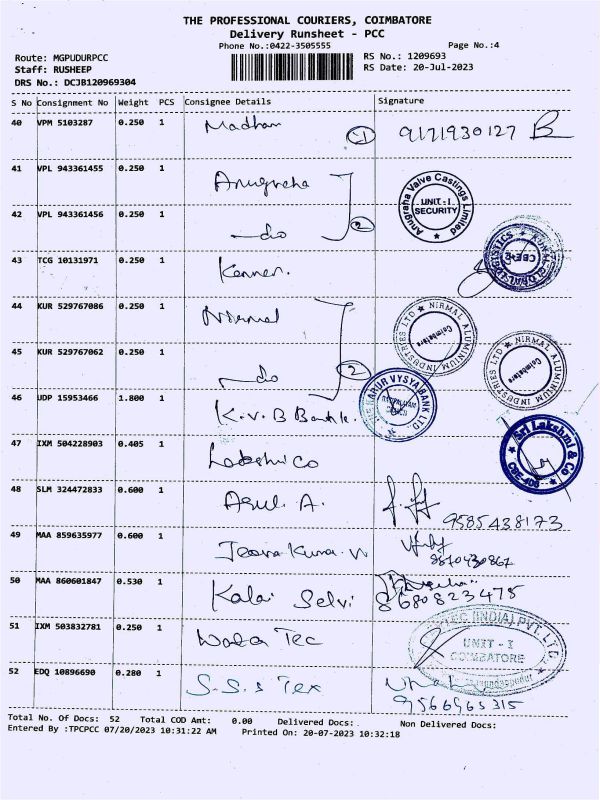 THE PROFESSIONAL COURIERS, COIMBATORE
Delivery Runsheet - PCC
Phone No.:0422-3505555 Page No.:4
Route: MGPUDURPCC RS No.: 1209693
Staff: RUSHEEP RS Date: 20-Jul-2023
DRS No.: DCJB120969304
S No Consignment No Weight PCS Consignee Details Signature
40 VPM 5103287 0.250 1 Madhan 1 9171930127
41 VPL 943361455 0.250 1 Anugraha
Anugraha Valve Castings Limited UNIT - I SECURITY
42 VPL 943361456 0.250 1 do 2
43 TCG 10131971 0.250 1
44 KUR 529767086 0.250 1 Nirmal
NIRMAL ALUMINIUM INDUSTRIES LTD Coimbatore
45 KUR 529767062 0.250 1 do 2
NIRMAL ALUMINIUM INDUSTRIES LTD Coimbatore
46 UDP 15953466 1.800 1 K.V.B Bank
KARUR VYSYA BANK LTD.
47 IXM 504228903 0.405 1
Sri Lakshmi & Co CBE-406
48 SLM 324472833 0.600 1 Arul. A. 9585438173
49 MAA 859635977 0.600 1
50 MAA 860601847 0.530 1 Kalai Selvi 8680823475
51 IXM 503832781 0.250 1
TEC (INDIA) PVT. LTD. UNIT - I COIMBATORE
52 EDQ 10896690 0.280 1 S.S.s Tex
9566965315
Total No. Of Docs: 52 Total COD Amt: 0.00 Delivered Docs: Non Delivered Docs:
Entered By :TPCPCC 07/20/2023 10:31:22 AM Printed On: 20-07-2023 10:32:18